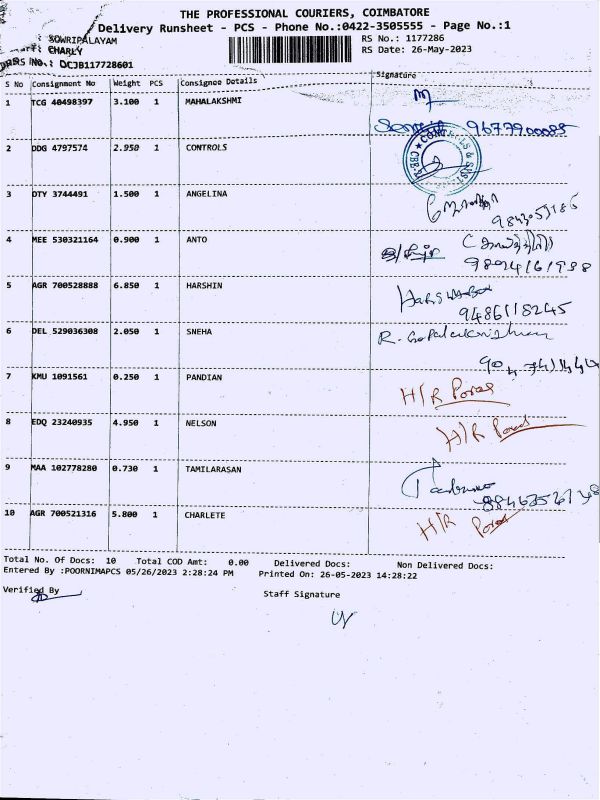 THE PROFESSIONAL COURIERS, COIMBATORE
Delivery Runsheet - PCS - Phone No.:0422-3505555 - Page No.:1
: SOWRIPALAYAM
RS No.: 1177286
: CHARLY
RS Date: 26-May-2023
DRS No.: DCJB117728601
S No Consignment No Weight PCS Consignee Details Signature
1 TCG 40498397 3.100 1 MAHALAKSHMI
9677900085
2 DDG 4797574 2.950 1 CONTROLS
3 DTY 3744491 1.500 1 ANGELINA
4 MEE 530321164 0.900 1 ANTO
5 AGR 700528888 6.850 1 HARSHIN
9486118245
6 DEL 529036308 2.050 1 SNEHA R. Gopalakrishnan
7 KMU 1091561 0.250 1 PANDIAN H/R Poras
8 EDQ 23240935 4.950 1 NELSON H/R Poras
9 MAA 102778280 0.730 1 TAMILARASAN
10 AGR 700521316 5.800 1 CHARLETE H/R Poras
Total No. Of Docs: 10 Total COD Amt: 0.00 Delivered Docs: Non Delivered Docs:
Entered By :POORNIMAPCS 05/26/2023 2:28:24 PM Printed On: 26-05-2023 14:28:22
Verified By Staff Signature